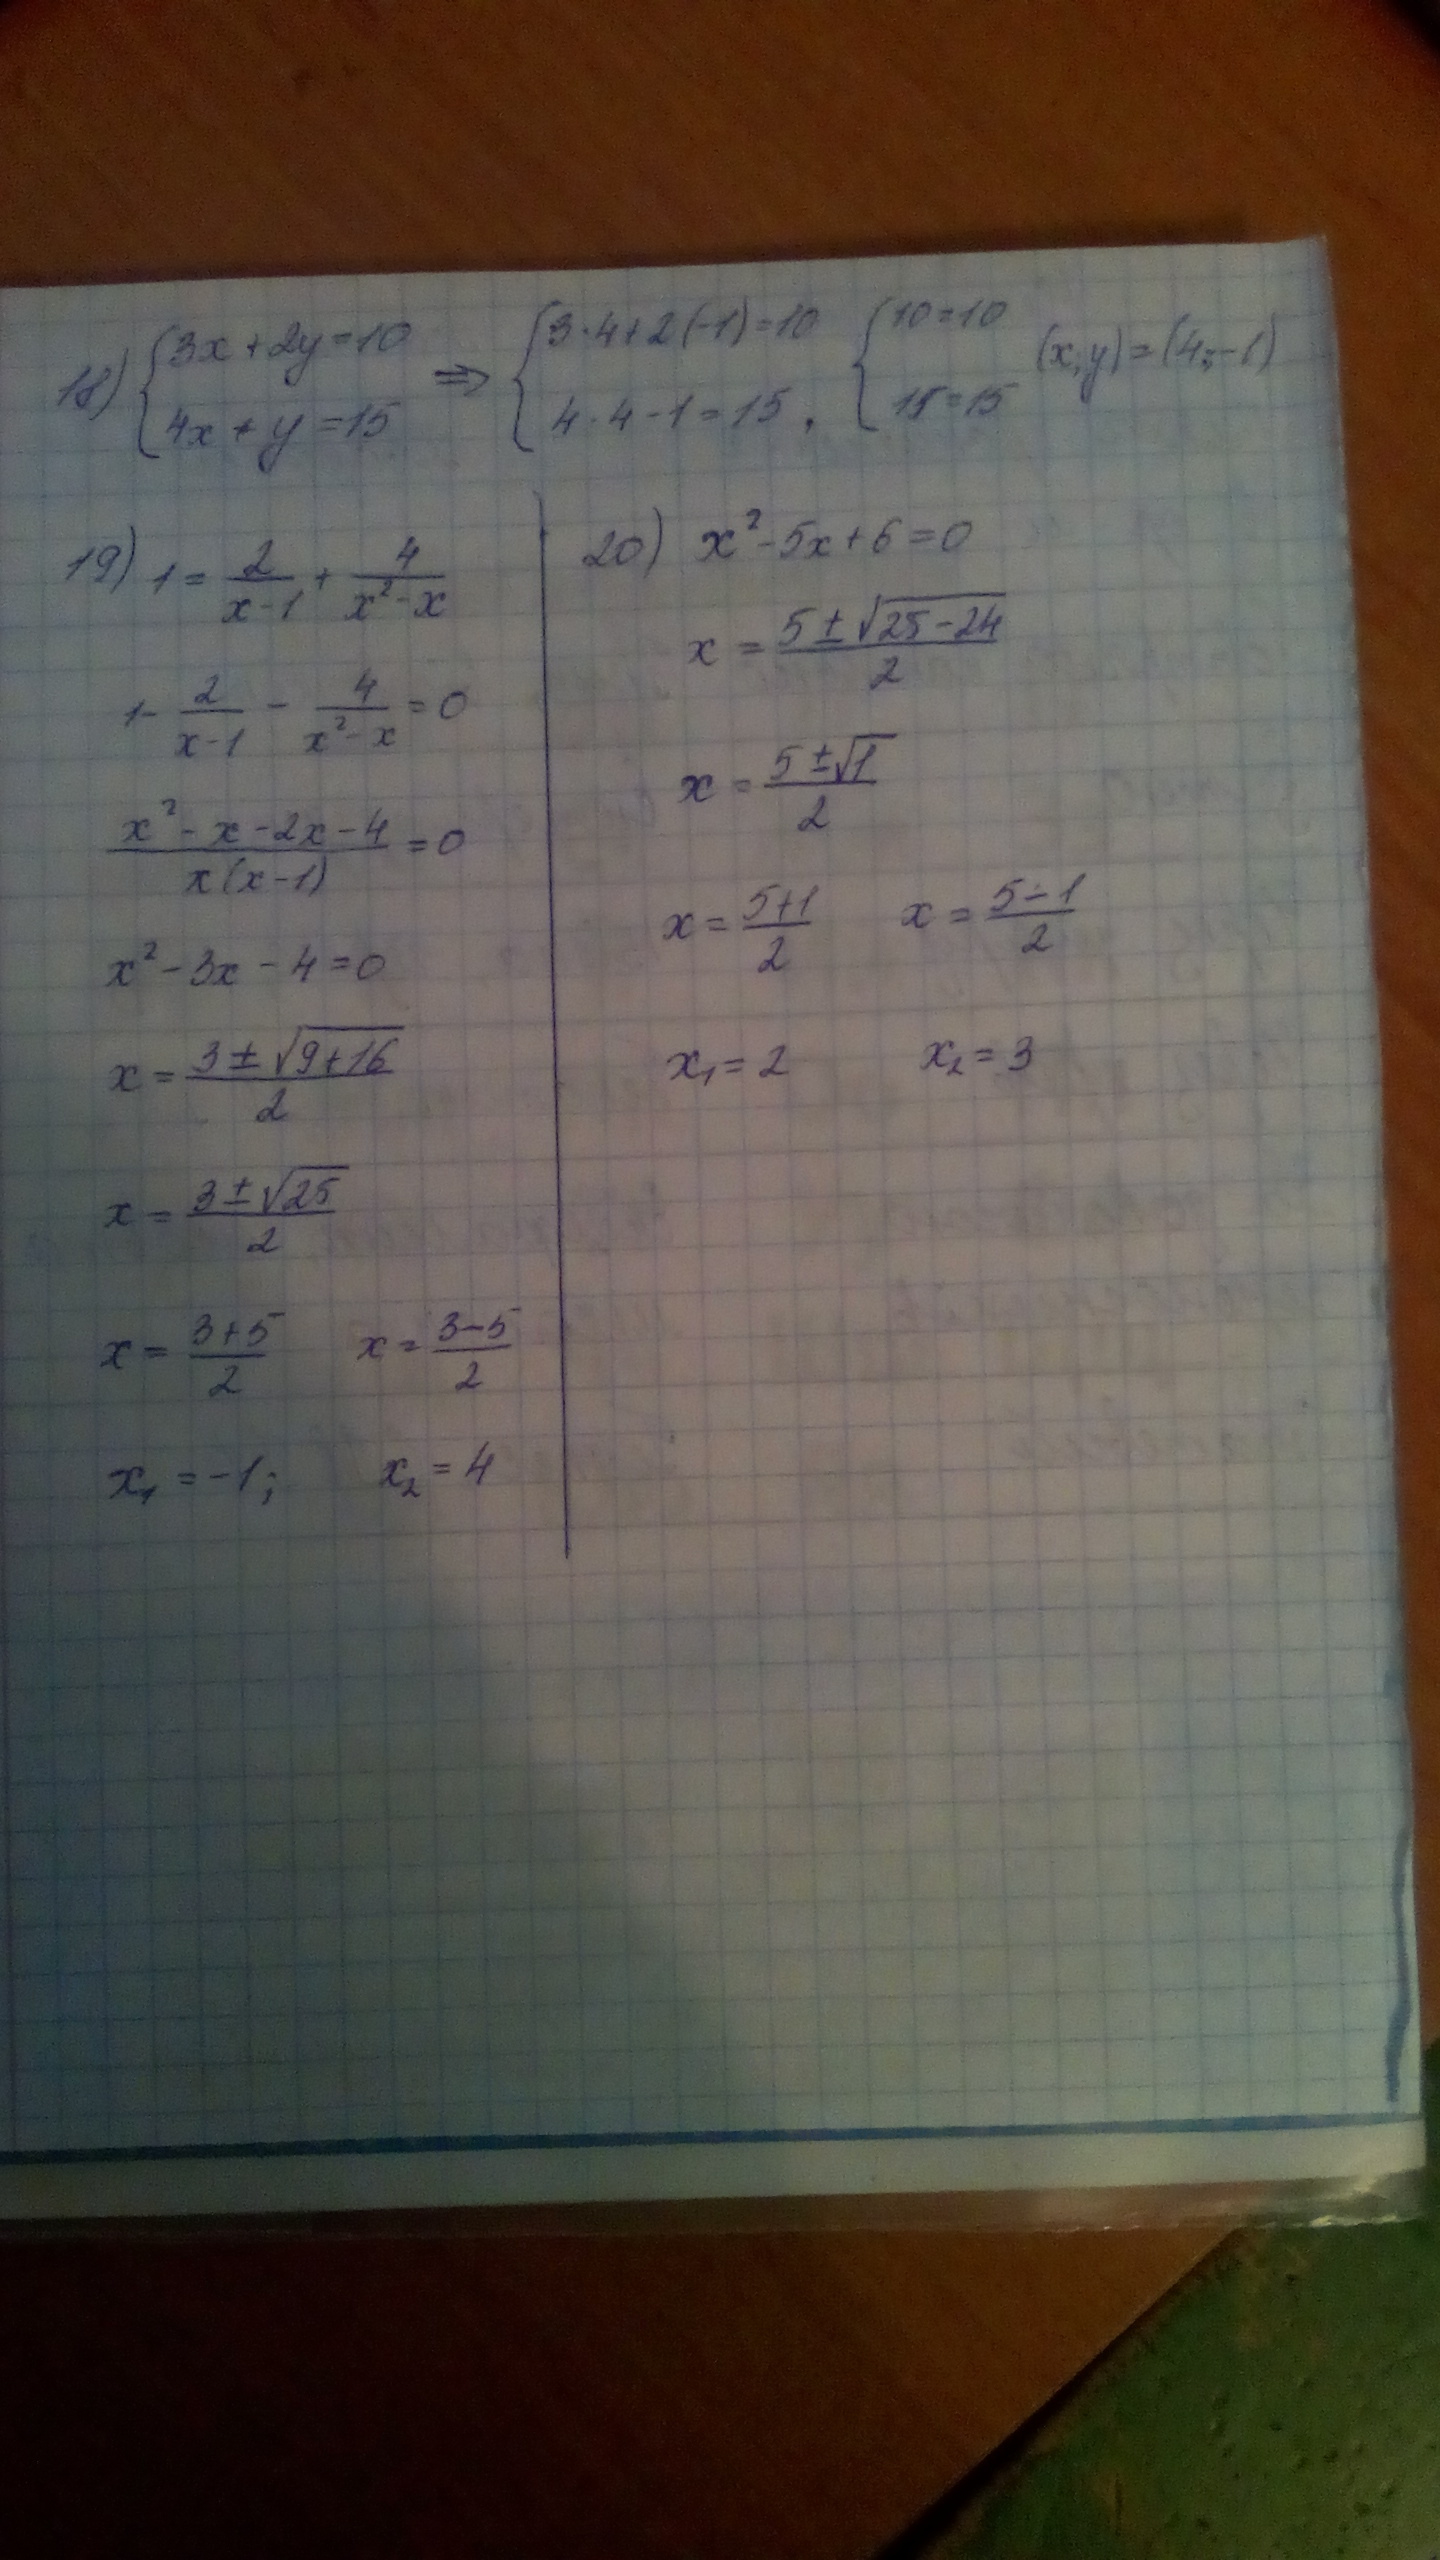 18) { 3x + 2y = 10 ⇒ { 3·4 + 2(-1) = 10 { 10 = 10 (x; y) = (4; -1)
4x + y = 15 4·4 - 1 = 15, 15 = 15
19) 1 = 2/(x-1) + 4/(x² - x)
1 - 2/(x-1) - 4/(x² - x) = 0
(x² - x - 2x - 4)/(x(x-1)) = 0
x² - 3x - 4 = 0
x = (3 ± √(9+16))/2
x = (3 ± √25)/2
x = (3+5)/2 x = (3-5)/2
x₁ = -1; x₂ = 4
20) x² - 5x + 6 = 0
x = (5 ± √(25-24))/2
x = (5 ± √1)/2
x = (5+1)/2 x = (5-1)/2
x₁ = 2 x₂ = 3